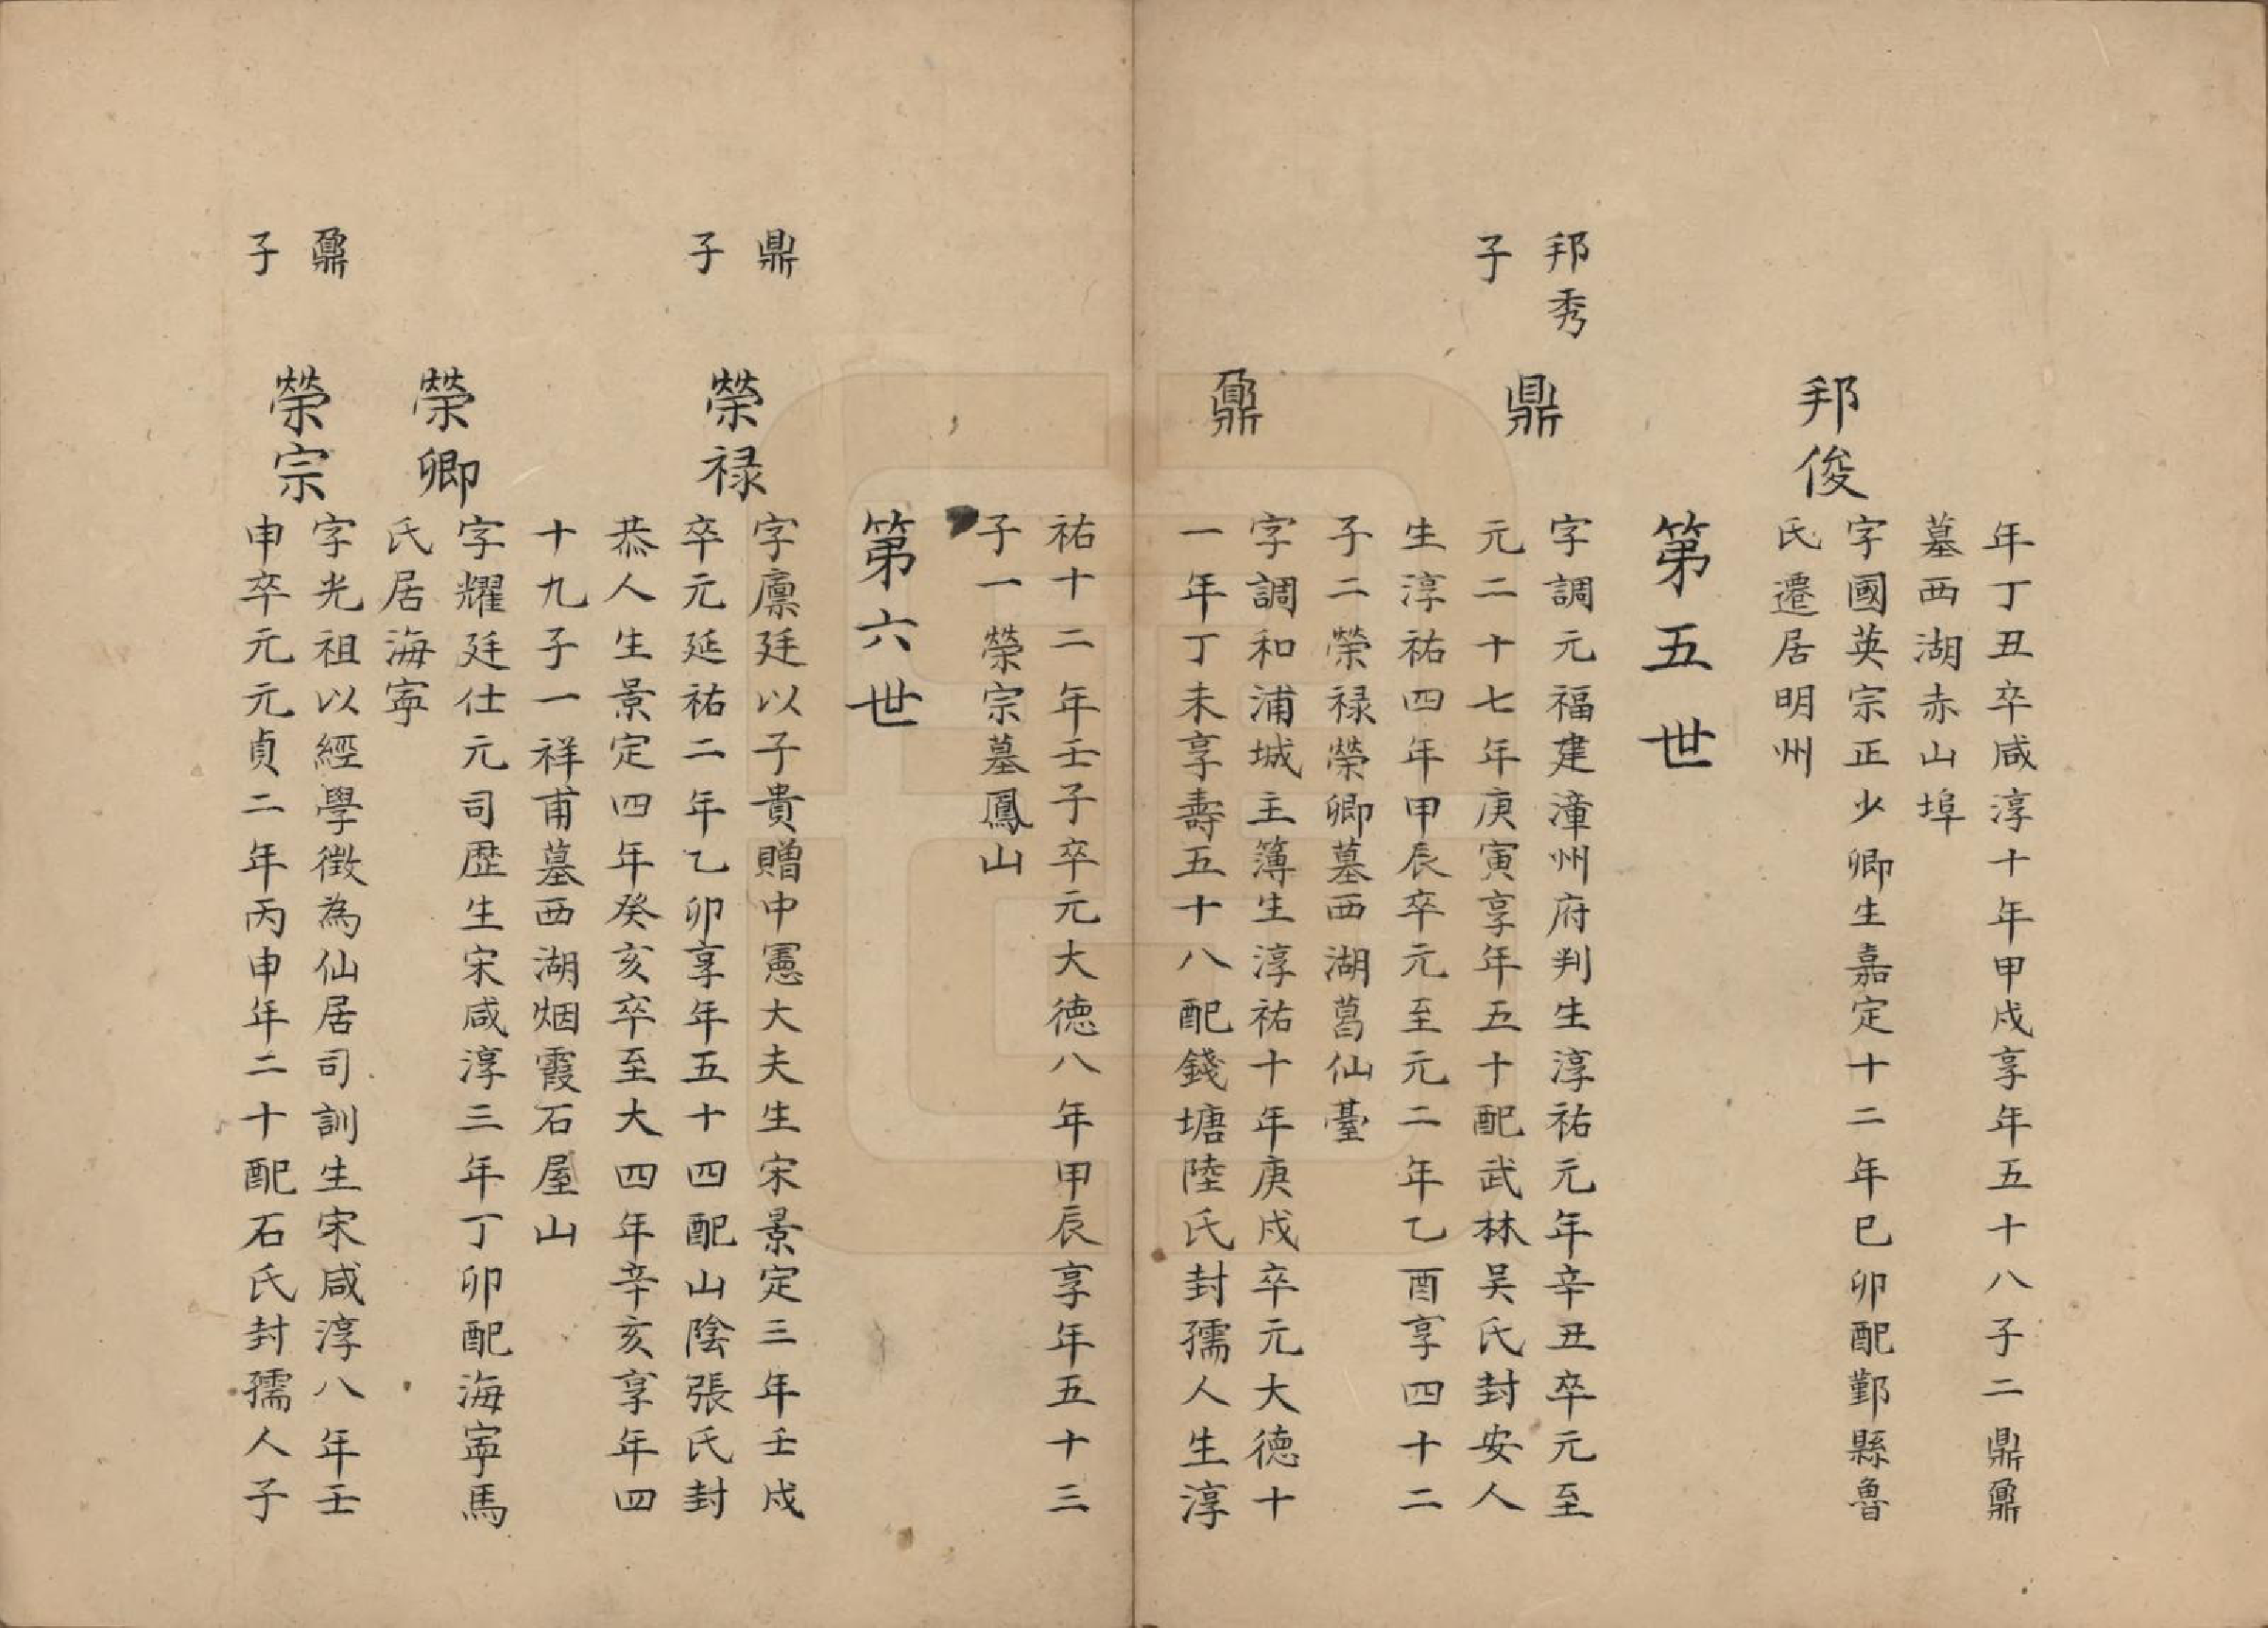 年丁丑卒咸淳十年甲戌享年五十八子二鼎鼐
墓西湖赤山埠
邦俊
字國英宗正少卿生嘉定十二年巳卯配鄞縣魯
氏遷居明州
第五世
邦秀
子
鼎
字調元福建漳州府判生淳祐元年辛丑卒元至
元二十七年庚寅享年五十配武林吴氏封安人
生淳祐四年甲辰卒元至元二年乙酉享四十二
子二榮禄榮卿墓西湖葛仙臺
鼐
字調和浦城主簿生淳祐十年庚戌卒元大德十
一年丁未享壽五十八配錢塘陸氏封孺人生淳
祐十二年壬子卒元大德八年甲辰享年五十三
子一榮宗墓鳳山
第六世
鼎
子
榮禄
字廪廷以子貴贈中憲大夫生宋景定三年壬戌
卒元延祐二年乙卯享年五十四配山陰張氏封
恭人生景定四年癸亥卒至大四年辛亥享年四
十九子一祥甫墓西湖烟霞石屋山
榮卿
字耀廷仕元司歴生宋咸淳三年丁卯配海寧馬
氏居海寧
鼐
子
榮宗
字光祖以經學徴為仙居司訓生宋咸淳八年壬
申卒元元貞二年丙申年二十配石氏封孺人子